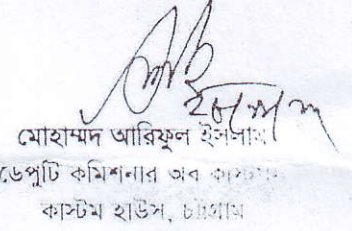 মোহাম্মদ আরিফুল ইসলাম
ডেপুটি কমিশনার অব কাস্টমস
কাস্টম হাউস, চট্টগ্রাম